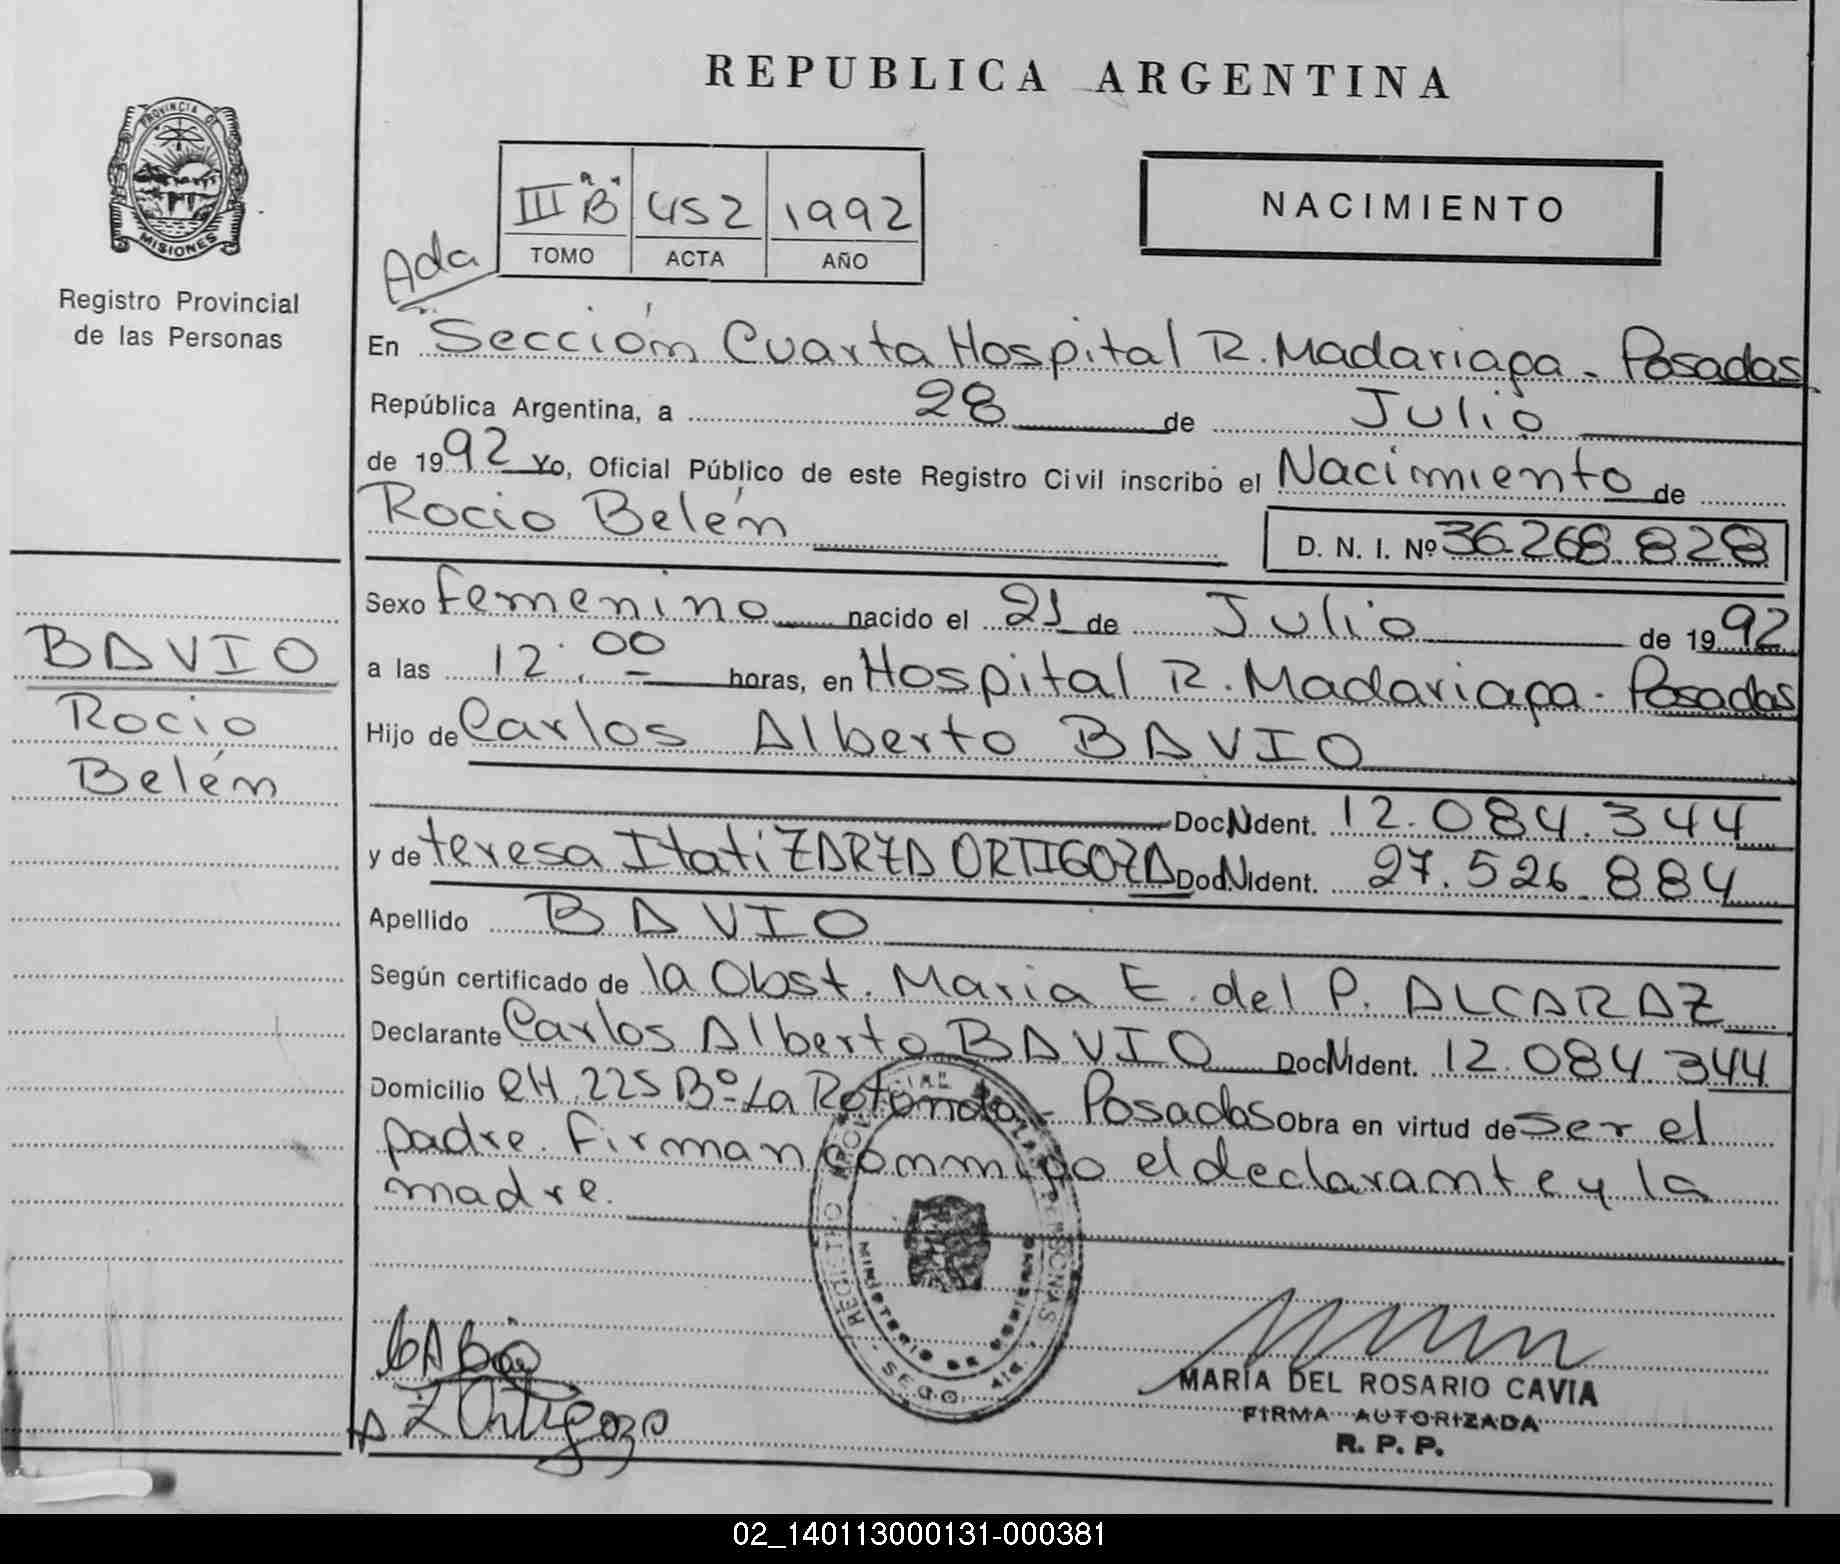 REPUBLICA ARGENTINA
PROVINCIA DE
MISIONES
Registro Provincial
de las Personas
III "B" 452 1992
TOMO ACTA AÑO
NACIMIENTO
Ada
En Sección Cuarta Hospital R. Madariaga - Posadas
República Argentina, a 28 de Julio
de 1992 Yo, Oficial Público de este Registro Civil inscribo el Nacimiento de
Rocio Belén
D. N. I. Nº 36.268.828
Sexo Femenino nacido el 21 de Julio de 1992
a las 12:00 horas, en Hospital R. Madariaga - Posadas
Hijo de Carlos Alberto BAVIO
Doc N Ident. 12.084.344
y de teresa Itati ZARZA ORTIGOZA Doc N Ident. 27.526.884
Apellido BAVIO
Según certificado de la Obst. Maria E. del P. ALCARAZ
Declarante Carlos Alberto BAVIO Doc N Ident. 12.084.344
Domicilio CH. 225 Bº La Rotonda - Posadas Obra en virtud de Ser el
padre. Firman conmigo el declarante y la
madre.
BAVIO
Rocio
Belén
REGISTRO PROVINCIAL DE LAS PERSONAS
MINISTERIO DE GOBIERNO
Z Ortigoza
MARIA DEL ROSARIO CAVIA
FIRMA AUTORIZADA
R. P. P.
02_140113000131-000381